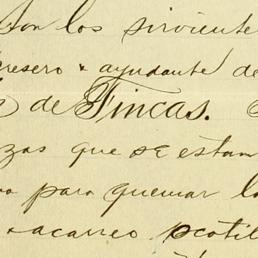 son los sirviente
resero & ayudante de
de Fincas.
zas que se estan
para quemar la
acarreo ocotil